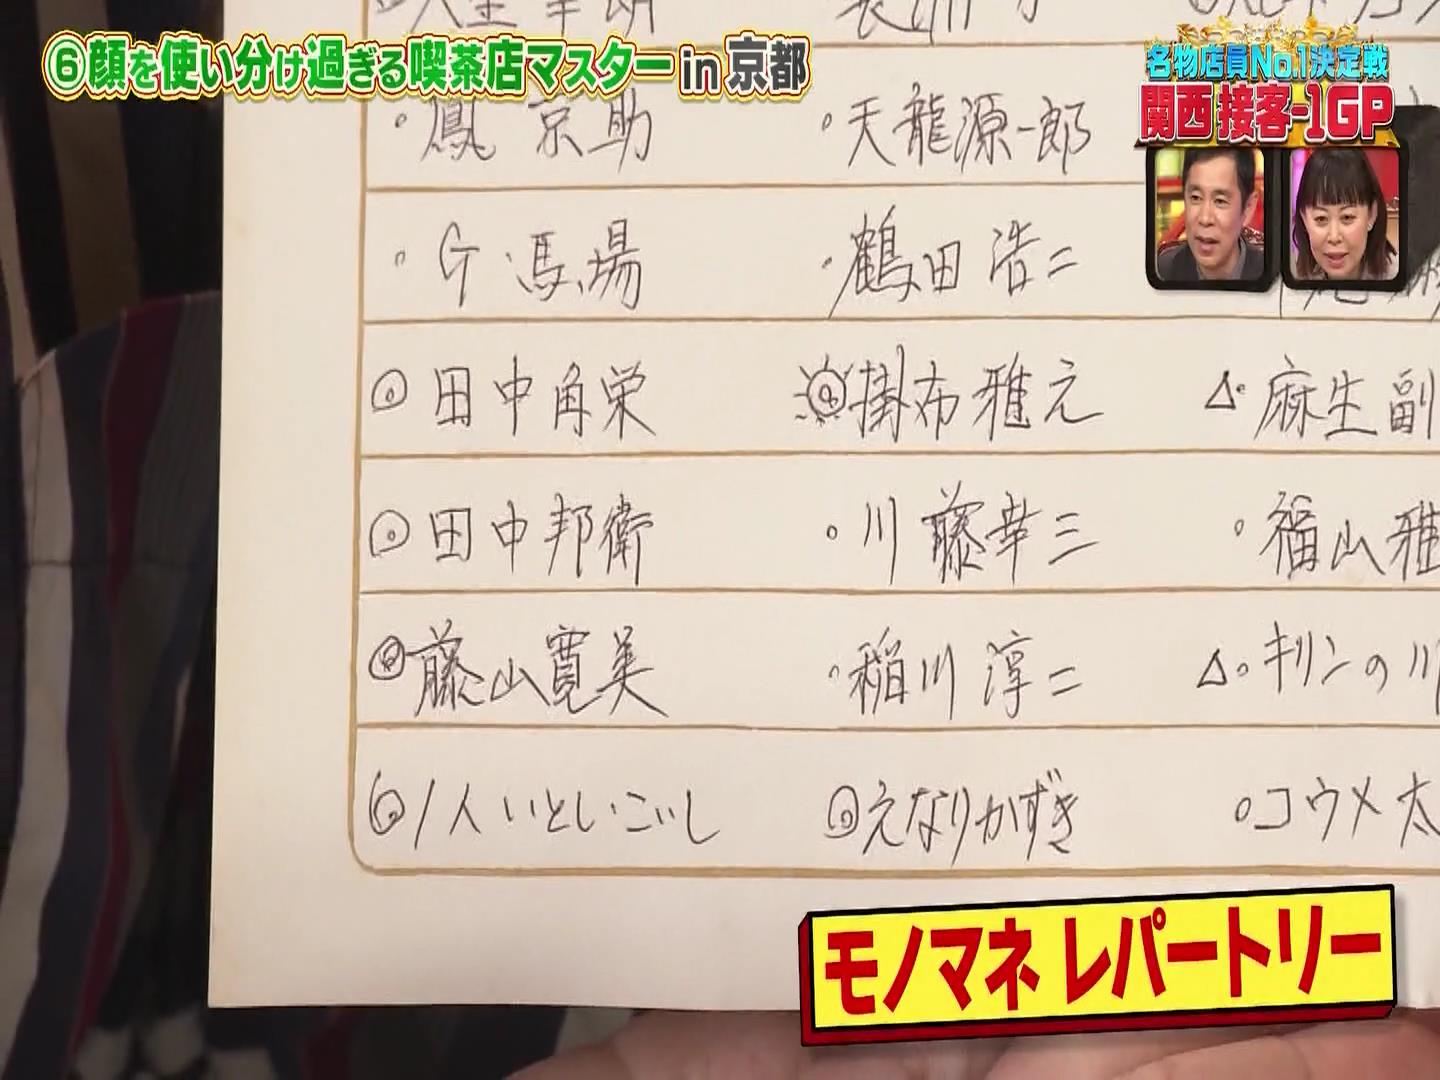 ⑥顔を使い分け過ぎる喫茶店マスターin京都
名物店員No.1決定戦
関西 接客-1GP
鳳 京助 天龍源一郎
G 馬場 鶴田 浩二
◎田中角栄 掛布雅之 △麻生副
田中邦衛 川藤幸三 福山雅
◎藤山寛美 稲川淳二 △キリンの川
◎1人いとしこいし ◎えなりかずき コウメ太
モノマネ レパートリー